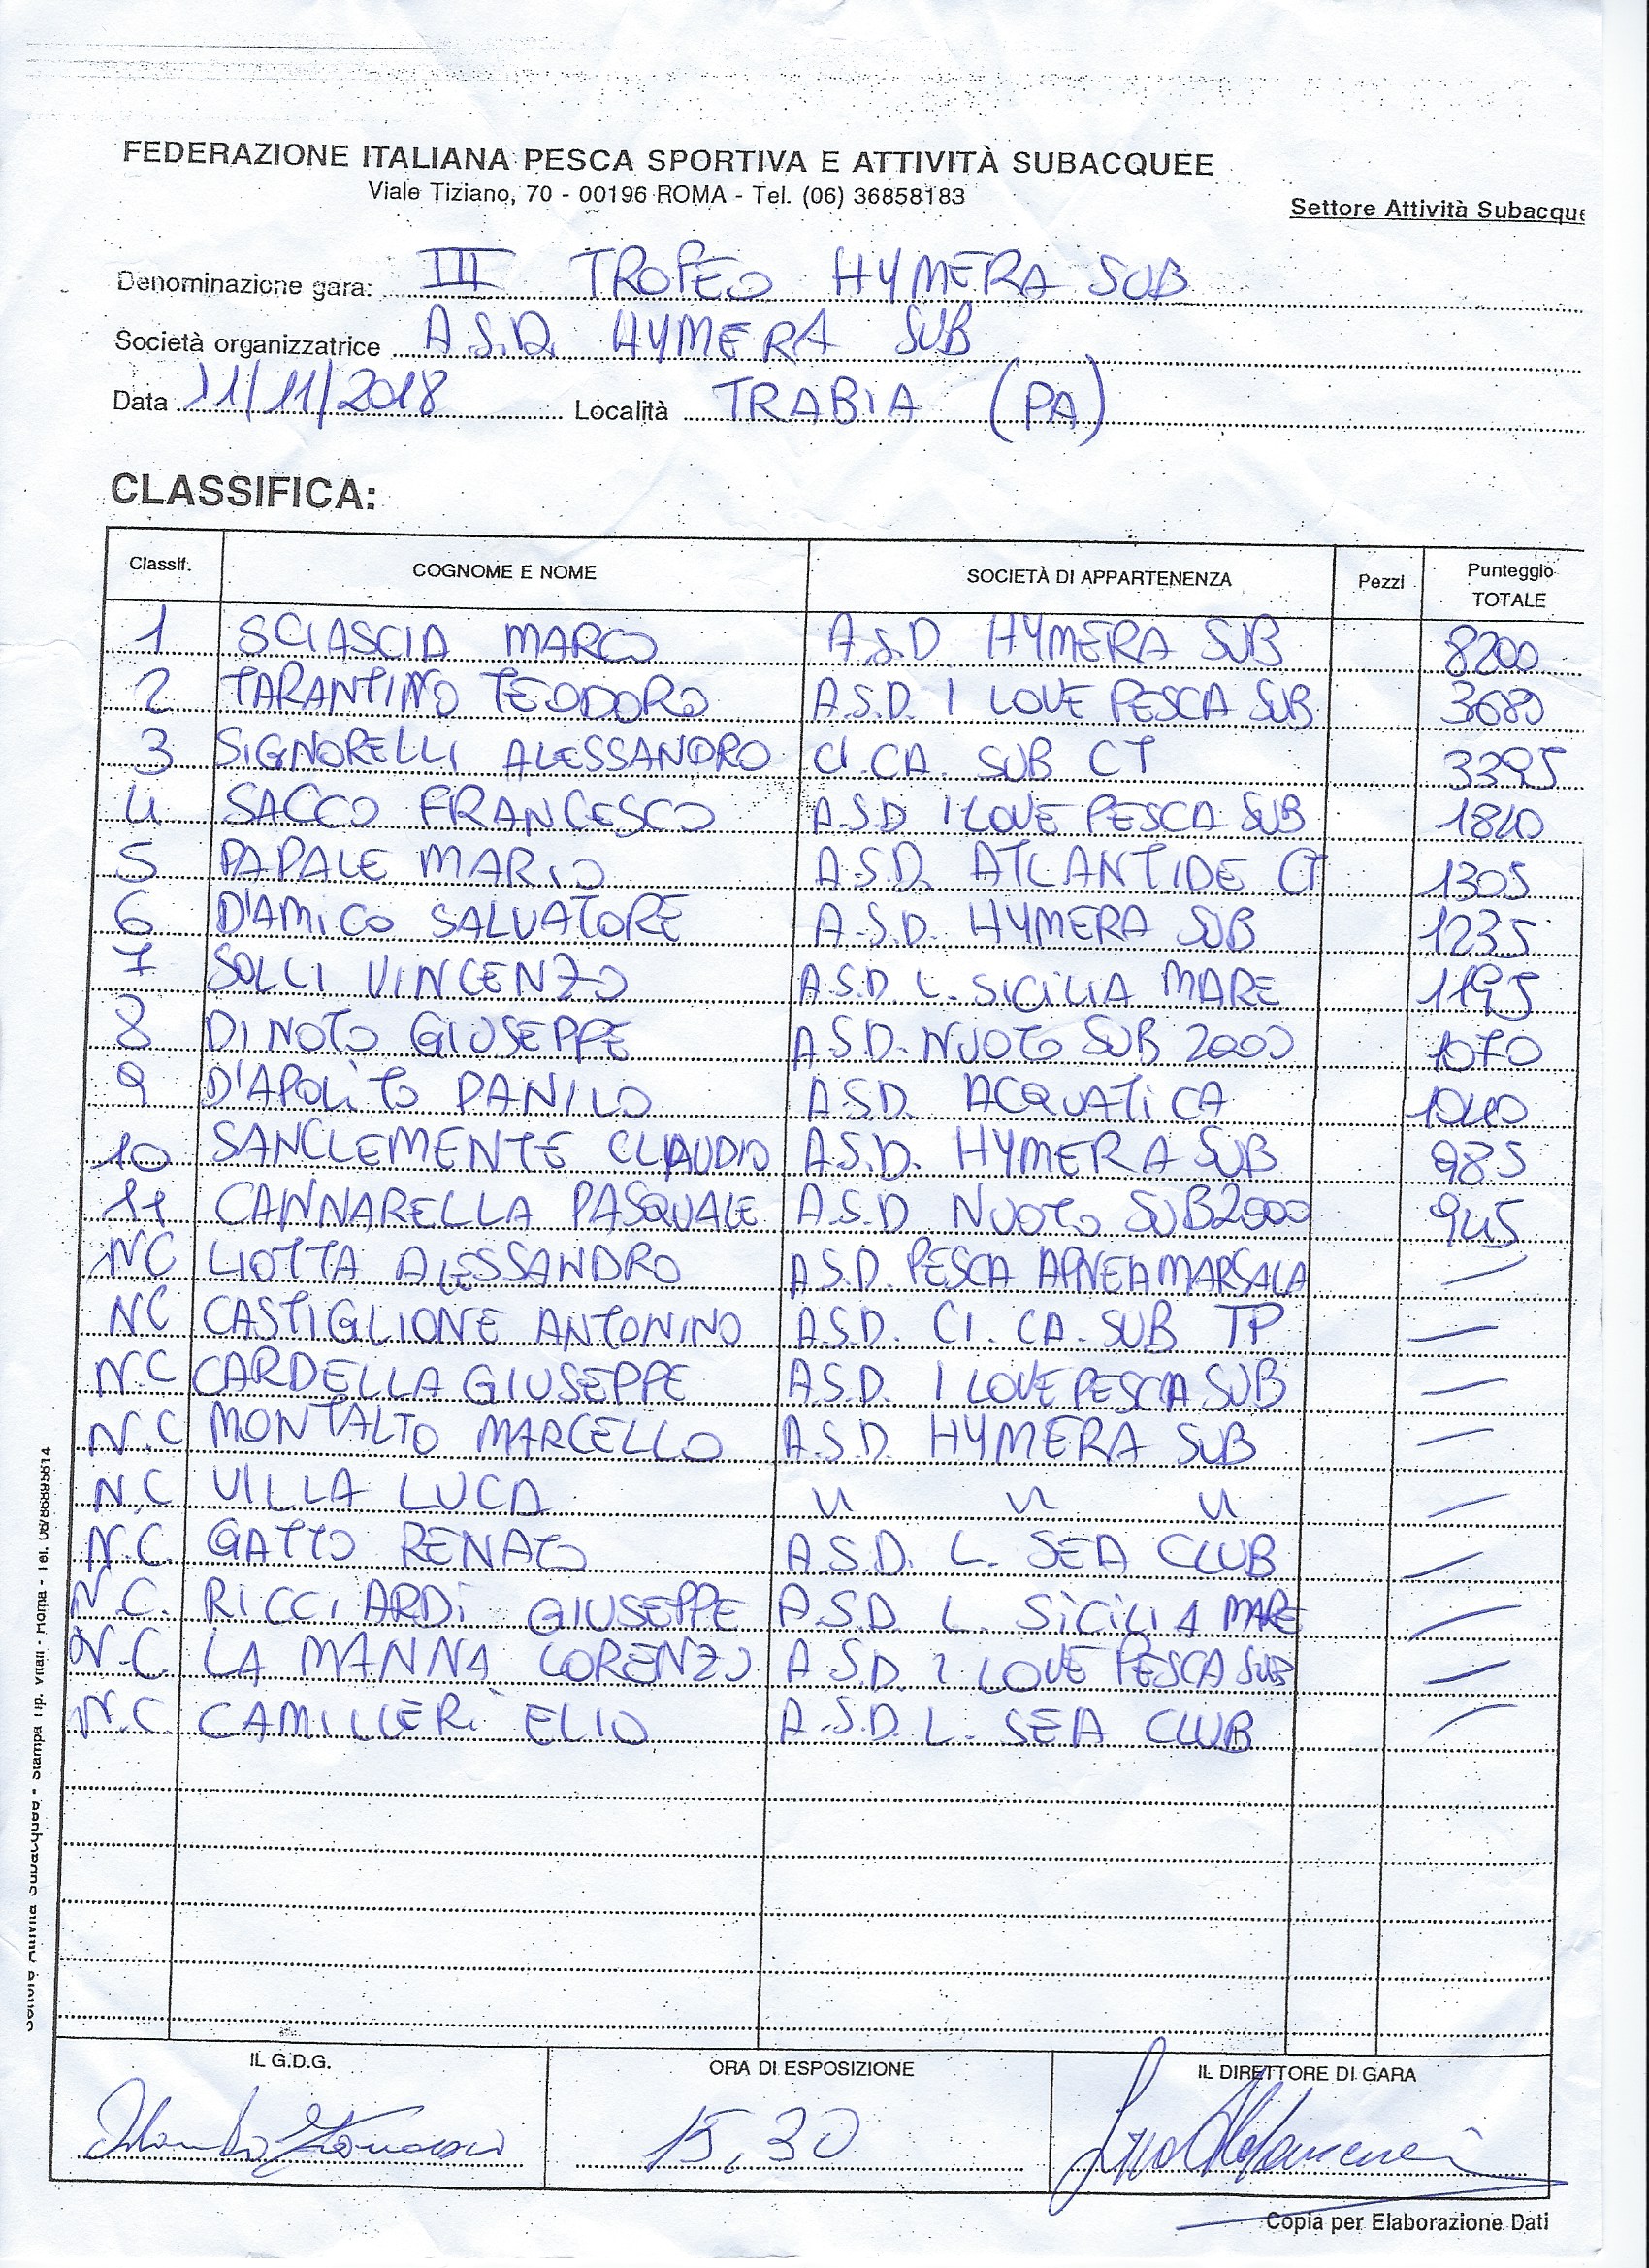 FEDERAZIONE ITALIANA PESCA SPORTIVA E ATTIVITÀ SUBACQUEE
Viale Tiziano, 70 - 00196 ROMA - Tel. (06) 36858183
Settore Attività Subacque
Denominazione gara: III TROFEO HYMERA SUB
Società organizzatrice A.S.D. HYMERA SUB
Data 11/11/2018 Località TRABIA (PA)
CLASSIFICA:
Classif. COGNOME E NOME SOCIETÀ DI APPARTENENZA Pezzi Punteggio TOTALE
1 SCIASCIA MARCO A.S.D. HYMERA SUB 8200
2 TARANTINO TEODORO A.S.D. I LOVE PESCA SUB 3680
3 SIGNORELLI ALESSANDRO CI.CA. SUB CT 3395
4 SACCO FRANCESCO A.S.D I LOVE PESCA SUB 1840
5 PAPALE MARIO A.S.D. ATLANTIDE CT 1305
6 D'AMICO SALVATORE A.S.D. HYMERA SUB 1235
7 SOLLI VINCENZO A.S.D L. SICILIA MARE 1195
8 DI NOTO GIUSEPPE A.S.D. NUOTO SUB 2000 1070
9 D'APOLITO DANILO A.S.D. ACQUATICA 1040
10 SANCLEMENTE CLAUDIO A.S.D. HYMERA SUB 985
11 CANNARELLA PASQUALE A.S.D NUOTO SUB2000 945
NC LIOTTA ALESSANDRO A.S.D. PESCA APNEA MARSALA —
NC CASTIGLIONE ANTONINO A.S.D. CI.CA. SUB TP —
N.C CARDELLA GIUSEPPE A.S.D. I LOVE PESCA SUB —
N.C MONTALTO MARCELLO A.S.D. HYMERA SUB —
N.C VILLA LUCA " " " —
N.C. GATTO RENATO A.S.D. L. SEA CLUB —
N.C. RICCIARDI GIUSEPPE A.S.D L. SICILIA MARE —
N.C. LA MANNA LORENZO A.S.D. I LOVE PESCA SUB —
N.C. CAMILLERI ELIO A.S.D. L. SEA CLUB —
IL G.D.G. ORA DI ESPOSIZIONE IL DIRETTORE DI GARA
15,30
Copia per Elaborazione Dati
Settore Attività Subacquee - Stampa Tip. Vitali - Roma - Tel.